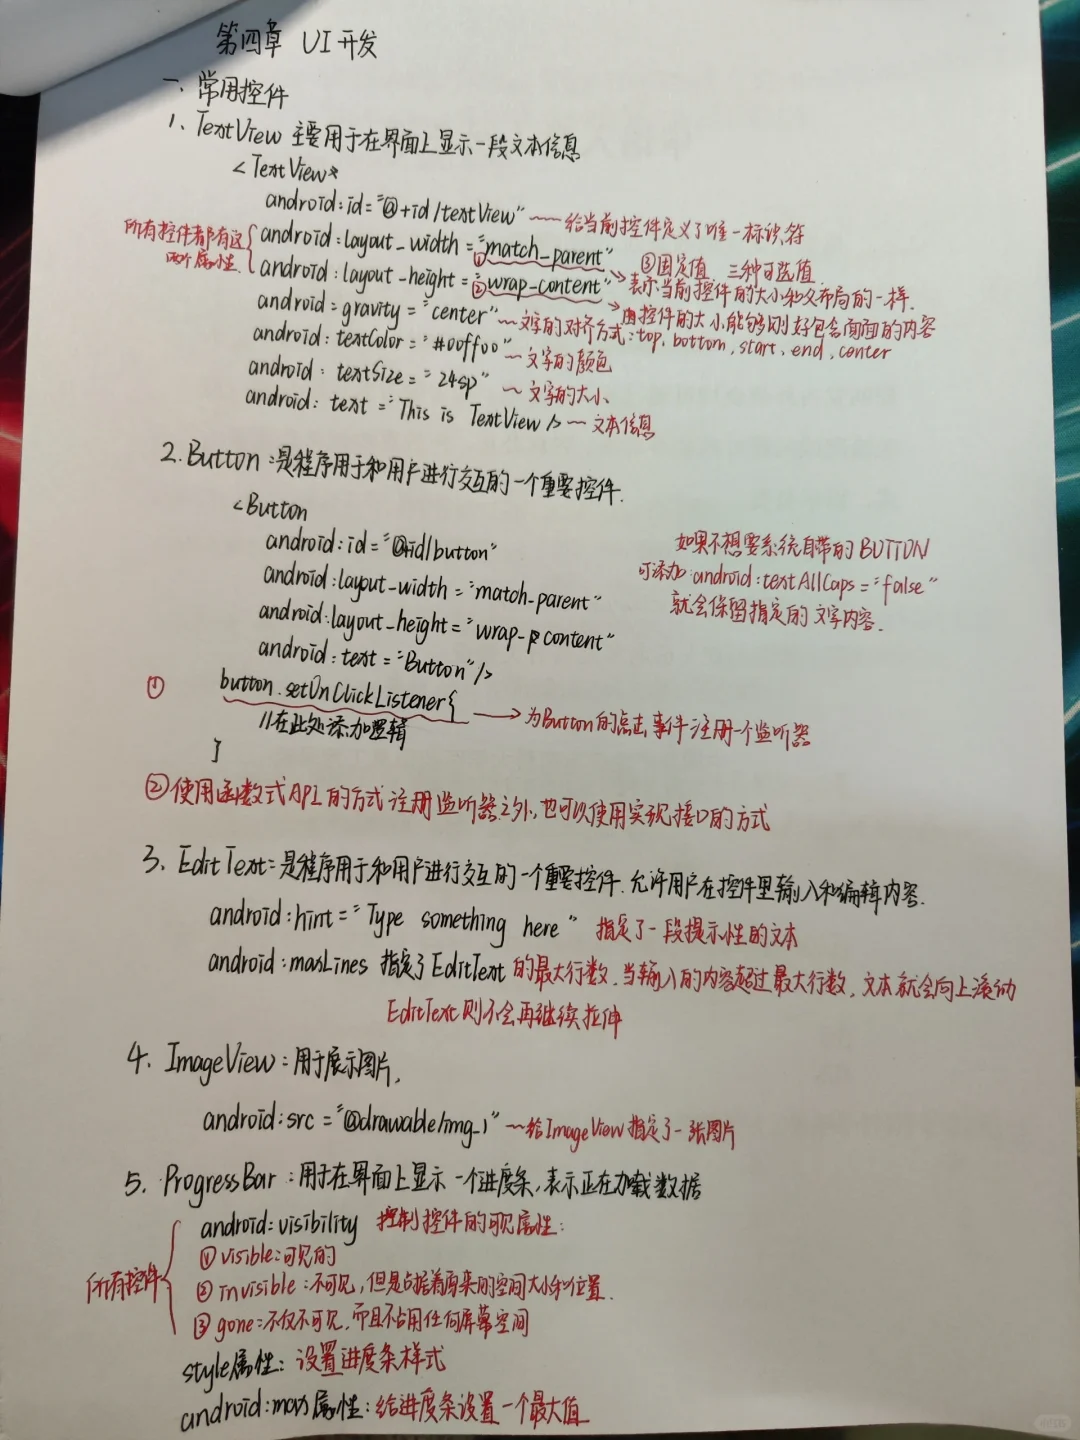 第四章 UI开发
一、常用控件
1、TextView 主要用于在界面上显示一段文本信息
<TextView
android:id="@+id/textView" 给当前控件定义了唯一标识符
所有控件都有这两个属性
android:layout_width="①match_parent" ③固定值 三种可选值
android:layout_height="②wrap_content" 表示当前控件的大小和父布局的一样.
由控件的大小能够刚好包含里面的内容
android:gravity="center" 文字的对齐方式:top、bottom、start、end、center
android:textColor="#00ff00" 文字的颜色
android:textSize="24sp" 文字的大小
android:text="This is TextView/> 文本信息
2.Button:是程序用于和用户进行交互的一个重要控件.
<Button
android:id="@+id/button"
android:layout_width="match_parent"
android:layout_height="wrap_content"
android:text="Button"/>
如果不想要系统自带的BUTTON
可添加:android:textAllCaps="false"
就会保留指定的文字内容.
① button.setOnClickListener{ → 为Button的点击事件注册一个监听器
//在此处添加逻辑
}
②使用函数式API的方式注册监听器之外,也可以使用实现接口的方式
3、EditText:是程序用于和用户进行交互的一个重要控件.允许用户在控件里输入和编辑内容.
android:hint="Type something here" 指定了一段提示性的文本
android:maxLines 指定了EditText的最大行数,当输入的内容超过最大行数,文本就会向上滚动
EditText则不会再继续拉伸
4、ImageView:用于展示图片,
android:src="@drawable/img_1" 给ImageView指定了一张图片
5、ProgressBar:用于在界面上显示一个进度条,表示正在加载数据
所有控件
android:visibility 控制控件的可见属性:
①visible:可见的
②invisible:不可见,但是占据着原来的空间大小和位置.
③gone:不仅不可见,而且不占用任何屏幕空间
style属性:设置进度条样式
android:max属性:给进度条设置一个最大值